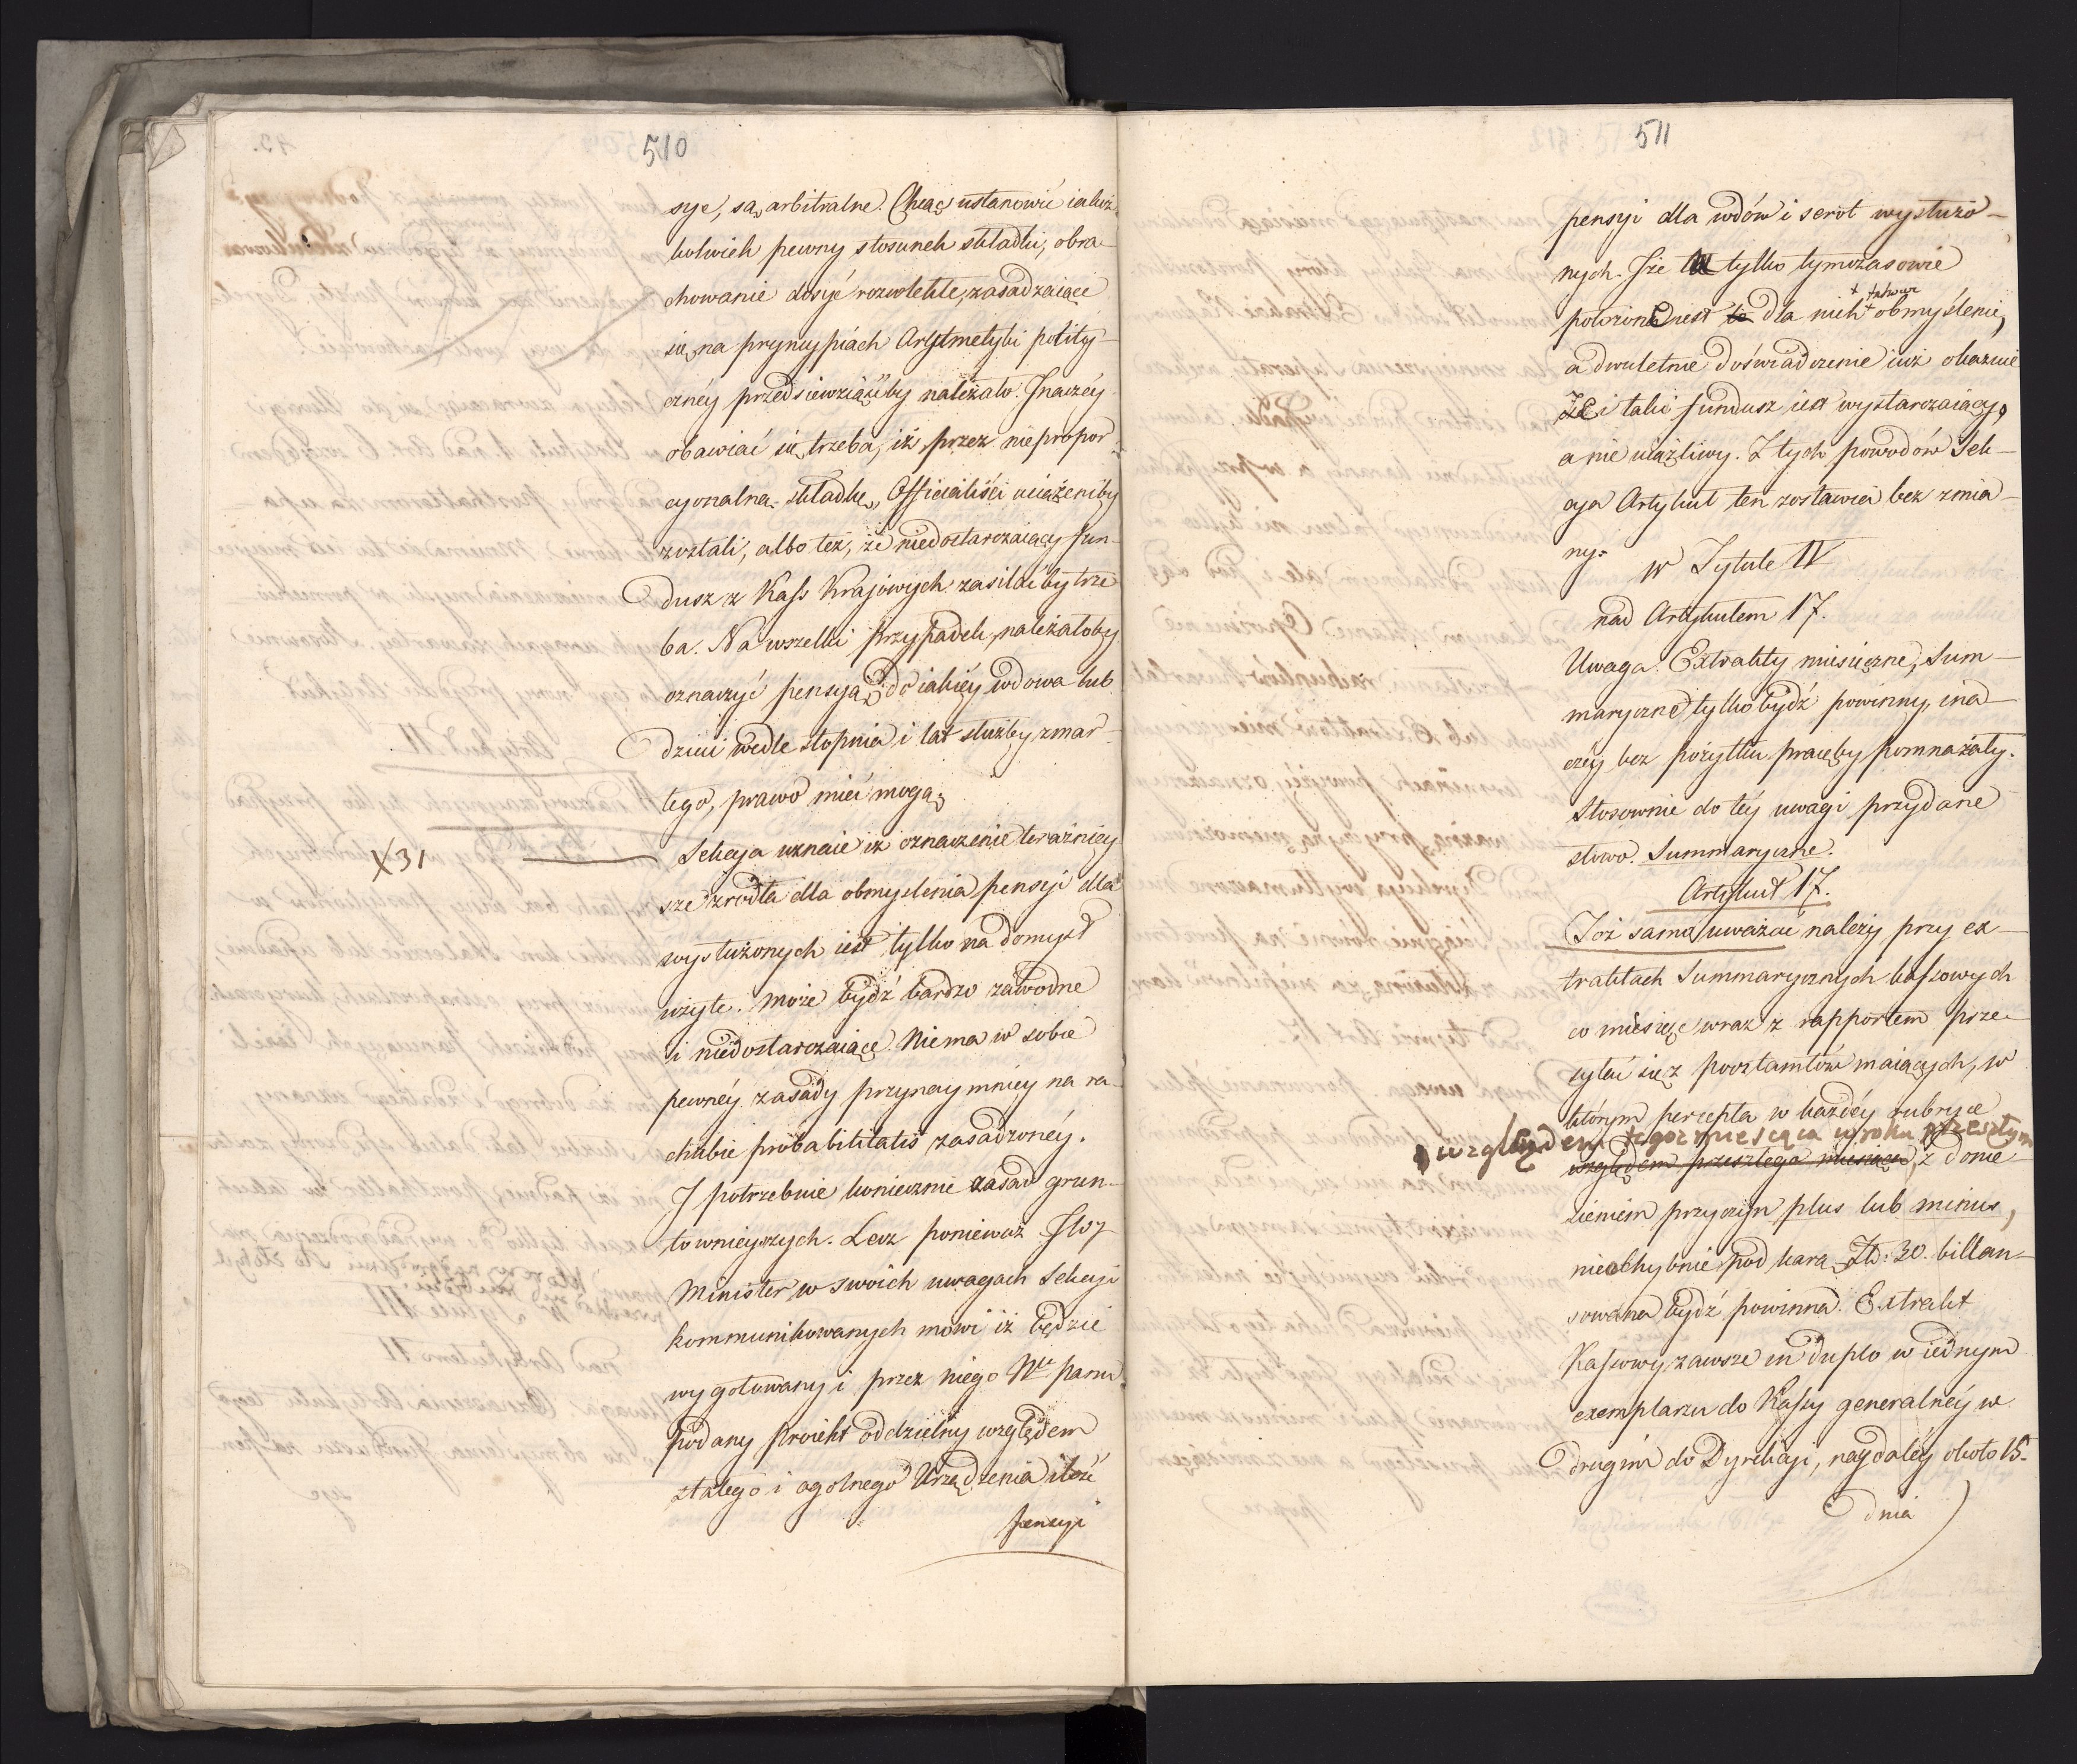 510
syę, są arbitralne. Chcąc ustanowić iakiż
kolwiek pewny stosunek składki, obra-
chowanie dosyć rozwlekłe, zasadzaiące
się na pryncypiach Arytmetyki polity-
czney przedsiewziąźćby należało. Inaczéy
obawiać się trzeba, iż przez niepropor-
cyonalną składkę, Officialiści uciążeniby
zostali, albo też, że niedostarczaiący fun-
dusz z Kass Krajowych zasilać by trze
ba. Na wszelki przypadek, należałoby
oznaczyć pensyą, do iakiéy wdowa lub
dzieci wedle stopnia i lat służby zmar-
łego, prawo mieć mogą.
X31
Sekcya uznaie iż oznaczenie teraźniey
sze zrodła dla obmyślenia pensyi dla
wysłużonych iest tylko na domysł
wzięte. Może bydź bardzo zawodne
i niedostarczaiące. Niema w sobie
pewnéy zasady przynaymniéy na ra-
chubie probabilitatis zasadzonéy.
I potrzebuie koniecznie zasad grun-
townieyszych. Lecz ponieważ JW
Minister w swoich uwagach Sekcyi
kommunikowanych mówi iż będzie
wygotowany i przez niego Nu Panu
podany Proiekt oddzielny względem
stałego i ogolnego Urządzenia
pensyi
511
pensyi dla wdów i serót wysłużo-
nych. Iże tu tylko tymczasowie
położone iest to dla nich + takowe obmyślenie,
a dwuletnie doświadczenie iuż okazuie
Że i taki fundusz iest wystarczaiący,
a nie uciążliwy. Z tych powodów Sek-
cya Artykuł ten zostawia bez zmia-
ny.
W Tytule IV
nad Artykułem 17.
Uwaga. Extrakty miesięczne, Sum-
maryczne tylko bydź powinny, ina-
czéy bez pożytku pracęby pomnażały.
Stosownie do téy uwagi przydane
słowo. Summaryczne.
Artykuł 17.
Toż samo uważać należy przy ex-
traktach Summarycznych kassowych
co miesięc wraz z rapportem prze-
syłać się z pocztamtów maiących, w
którym percepta w każdéy rubryce
względem tegoż miesiąca w roku przeszłym
względem przeszłego miesiąca, z donie-
sieniem przyczyn plus lub minus,
niechybnie pod karą Zł: 30. billan-
sowana bydź powinna. Extrakt
Kassowy zawsze in duplo w iednym
exemplarzu do Kassy generalnéy w
drugim do Dyrekcyi, naydaléy około 15.
dnia